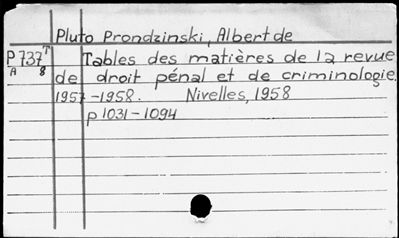 Pluto Prondzinski, Albert de
P 737 T Tables des matières de la revue
A 8 de droit pénal et de criminologie.
1957-1958. Nivelles, 1958
p 1031-1094